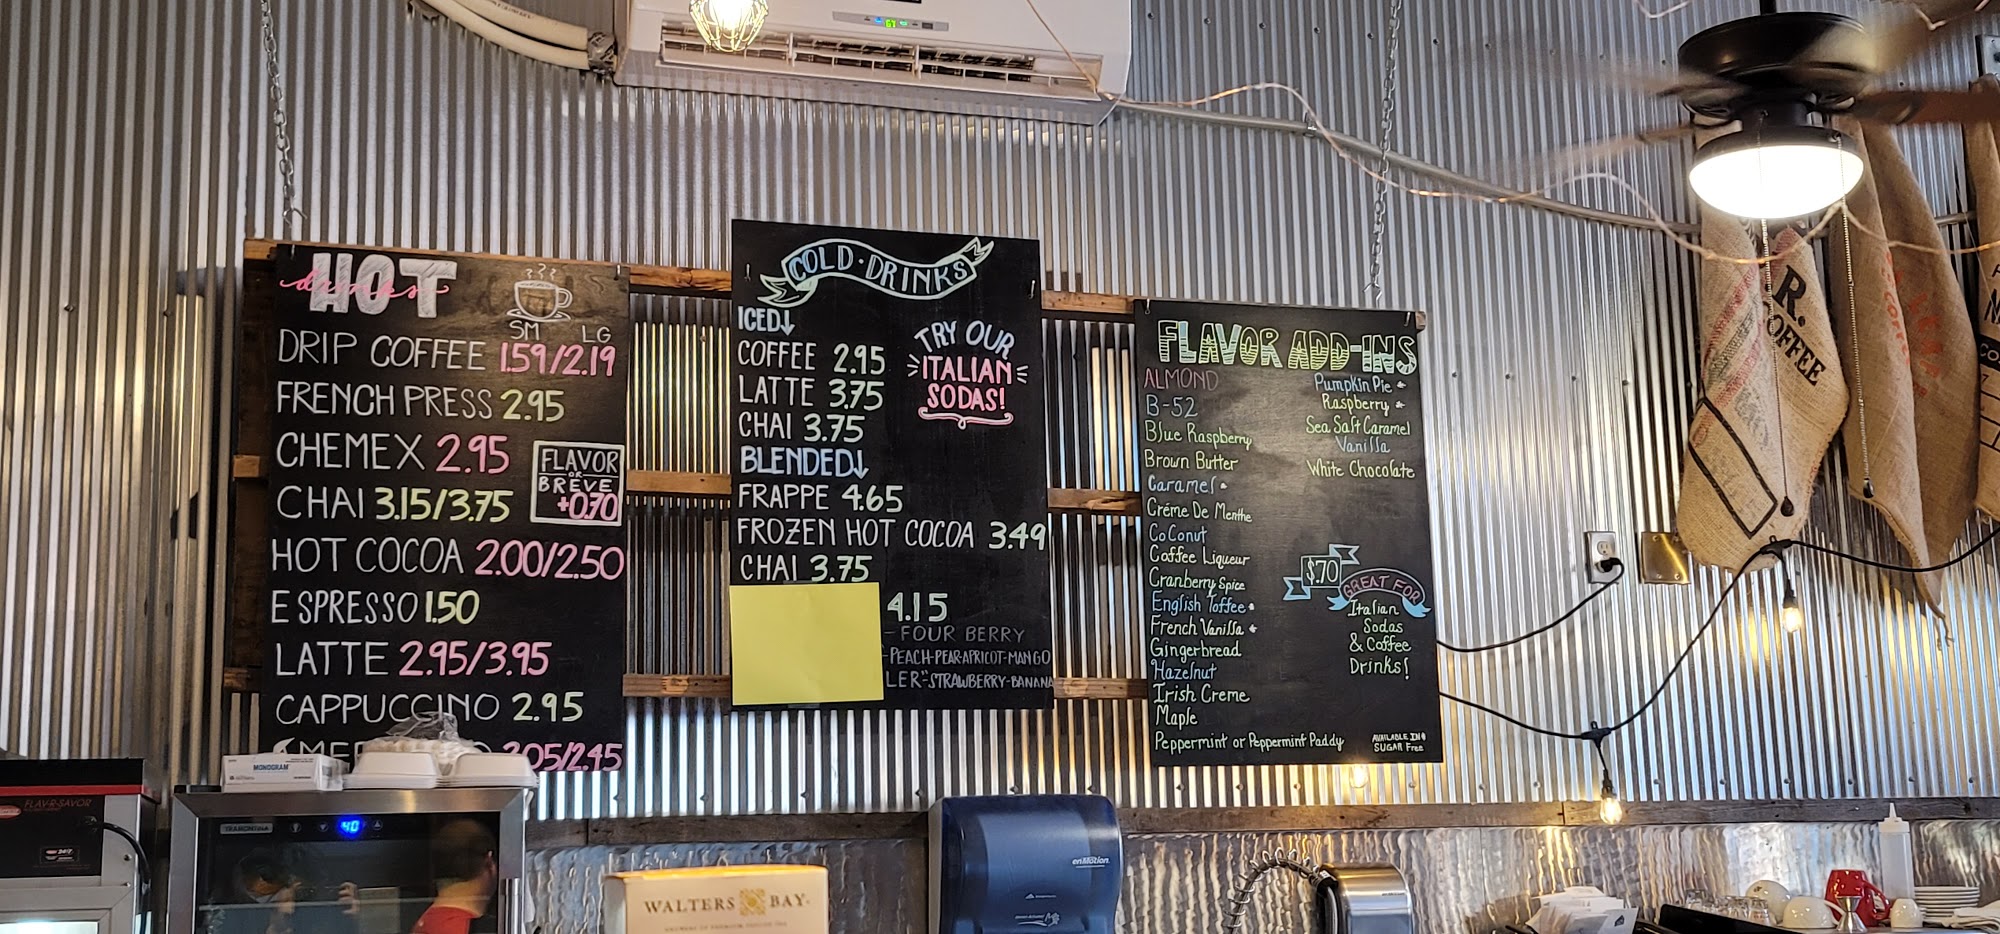 HOT
drinks
SM LG
DRIP COFFEE 1.59/2.19
FRENCH PRESS 2.95
CHEMEX 2.95
CHAI 3.15/3.75
HOT COCOA 2.00/2.50
ESPRESSO 1.50
LATTE 2.95/3.95
CAPPUCCINO 2.95
05/2.45
FLAVOR
OR
BREVE
+0.70
COLD·DRINKS
ICED↓
COFFEE 2.95
LATTE 3.75
CHAI 3.75
BLENDED↓
FRAPPE 4.65
FROZEN HOT COCOA 3.49
CHAI 3.75
4.15
-FOUR BERRY
-PEACH-PEAR-APRICOT-MANGO
LER"STRAWBERRY-BANANA
TRY OUR
ITALIAN
SODAS!
FLAVOR ADD-INS
ALMOND
B-52
Blue Raspberry
Brown Butter
Caramel *
Créme De Menthe
CoConut
Coffee Liqueur
Cranberry Spice
English Toffee *
French Vanilla *
Gingerbread
Hazelnut
Irish Creme
Maple
Peppermint or Peppermint Paddy
Pumpkin Pie *
Raspberry *
Sea Salt Caramel
Vanilla
White Chocolate
$.70
GREAT FOR
Italian
Sodas
& Coffee
Drinks!
AVAILABLE IN *
SUGAR Free
R.
COFFEE
67
FLAV-R-SAVOR
MONOGRAM
TRAMONTINA
40
WALTERS BAY
enMotion